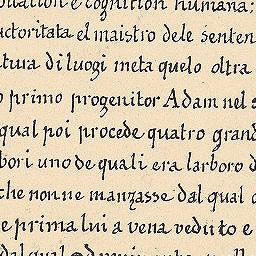 uation e cognition humana:
uctoritata el maistro dele senten
tura di luogi meta quelo oltra
o primo progenitor Adam nel s
qual poi procede quatro grand
bori uno de quali era larboro d
che non ne manzasse dal qual
e prima lui avena veduto e
dal qual